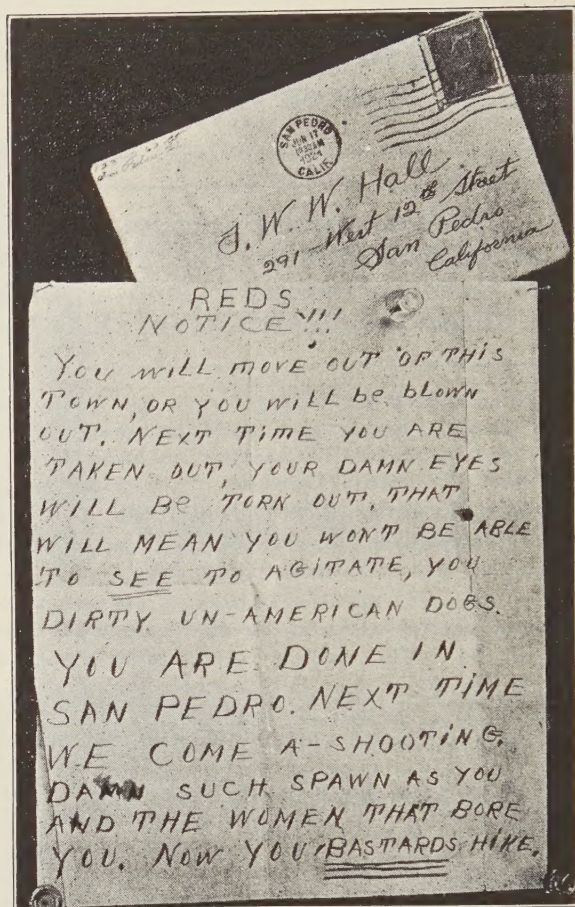 SAN PEDRO
JUN 17
1030AM
1924
CALIF.
J. W. W. Hall
291 - West 12th Street
San Pedro
California
REDS
NOTICE!!!
YOU WILL MOVE OUT OF THIS
TOWN, OR YOU WILL be bLOWN
OUT. NEXT TiME YOU ARE
TAKEN OUT, YOUR DAMN EYES
WILL Be TORN OUT, THAT
WILL MEAN YOU WON'T BE ABLE
TO SEE TO AGITATE, YOU
DIRTY UN-AMERICAN DOGS.
YOU ARE DONE IN
SAN PEDRO. NEXT TiME
WE COME A-SHOOTiNG.
DAMN SUCH SPAWN AS YOU
AND THE WOMEN THAT BORE
YOU. NOW YOU BASTARDS HIKE.